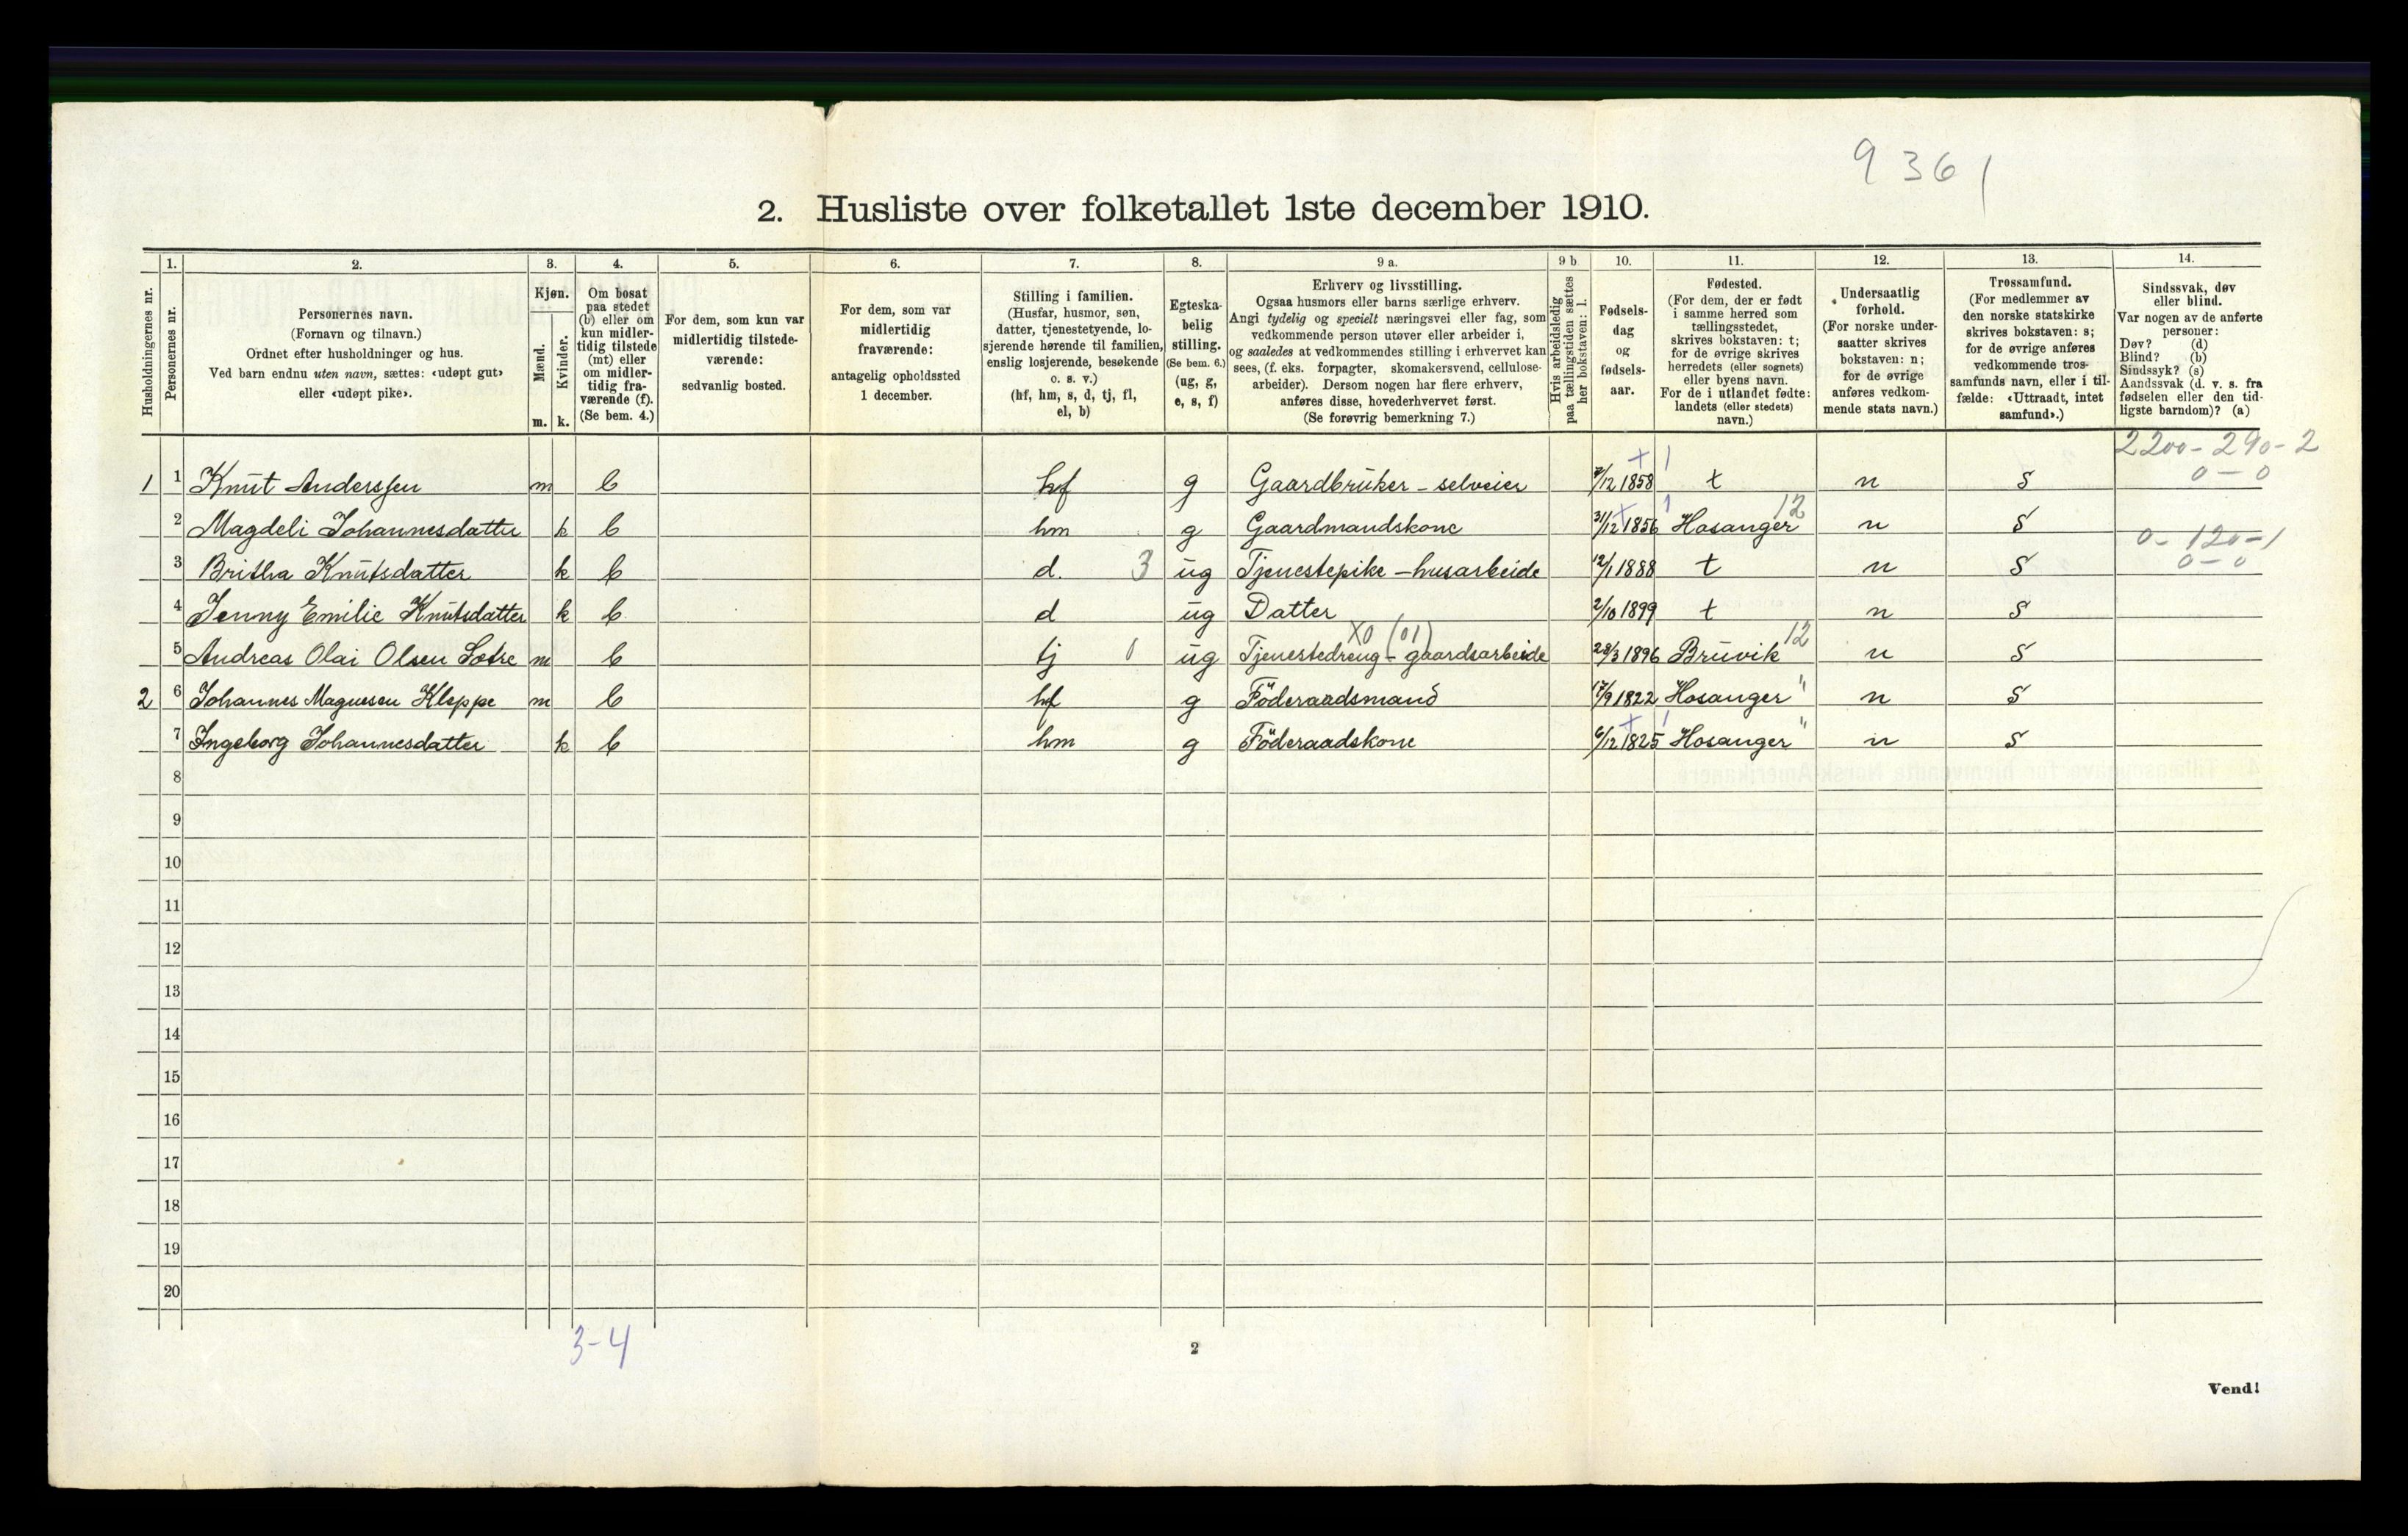 9 36 1
2. Husliste over folketallet 1ste december 1910.
Husholdningernes nr.
1.
Personernes nr.
2.
Personernes navn.
(Fornavn og tilnavn.)
Ordnet efter husholdninger og hus.
Ved barn endnu uten navn, sættes: «udøpt gut»
eller «udøpt pike».
3.
Kjøn.
Mænd.
Kvinder.
m. k.
4.
Om bosat
paa stedet
(b) eller om
kun midler-
tidig tilstede
(mt) eller
om midler-
tidig fra-
værende (f).
(Se bem. 4.)
5.
For dem, som kun var
midlertidig tilstede-
værende:
sedvanlig bosted.
6.
For dem, som var
midlertidig
fraværende:
antagelig opholdssted
1 december.
7.
Stilling i familien.
(Husfar, husmor, søn,
datter, tjenestetyende, lo-
sjerende hørende til familien,
enslig losjerende, besøkende
o. s. v.)
(hf, hm, s, d, tj, fl,
el, b)
8.
Egteska-
belig
stilling.
(Se bem. 6.)
(ug, g,
e, s, f)
9 a.
Erhverv og livsstilling.
Ogsaa husmors eller barns særlige erhverv.
Angi tydelig og specielt næringsvei eller fag, som
vedkommende person utøver eller arbeider i,
og saaledes at vedkommendes stilling i erhvervet kan
sees, (f. eks. forpagter, skomakersvend, cellulose-
arbeider). Dersom nogen har flere erhverv,
anføres disse, hovederhvervet først.
(Se forøvrig bemerkning 7.)
9 b.
Hvis arbeidsledig
paa tællingstiden sættes
her bokstaven: l.
10.
Fødsels-
dag
og
fødsels-
aar.
11.
Fødested.
(For dem, der er født
i samme herred som
tællingsstedet,
skrives bokstaven: t;
for de øvrige skrives
herredets (eller sognets)
eller byens navn.
For de i utlandet fødte:
landets (eller stedets)
navn.)
12.
Undersaatlig
forhold.
(For norske under-
saatter skrives
bokstaven: n;
for de øvrige
anføres vedkom-
mende stats navn.)
13.
Trossamfund.
(For medlemmer av
den norske statskirke
skrives bokstaven: s;
for de øvrige anføres
vedkommende tros-
samfunds navn, eller i til-
fælde: «Uttraadt, intet
samfund».)
14.
Sindssvak, døv
eller blind.
Var nogen av de anførte
personer:
Døv? (d)
Blind? (b)
Sindssyk? (s)
Aandssvak (d. v. s. fra
fødselen eller den tid-
ligste barndom)? (a)
2200 - 290 - 2
1 1 Knut Anderssen m b hf g Gaardbruker - selveier 7/12 1858 t n s 0 - 0
2 Magdeli Johannesdatter k b hm g Gaardmandskone 31/12 1856 Hosanger 12 n s
0 - 120 - 1
3 Britha Knutsdatter k b d. 3 ug Tjenestepike - husarbeide 12/1 1888 t n s 0 - 0
4 Jenny Emilie Knutsdatter k b d ug Datter 2/10 1899 t n s
X0 (01)
5 Andreas Olai Olsen Sætre m b tj 0 ug Tjenestedreng - gaardsarbeide 28/3 1896 Bruvik 12 n s
2 6 Johannes Magnesen Kleppe m b hf g Föderaadsmand 17/9 1822 Hosanger " n s
7 Ingeborg Johannesdatter k b hm g Föderaadskone 6/12 1825 Hosanger " n s
8
9
10
11
12
13
14
15
16
17
18
19
20
3-4
2
Vend!